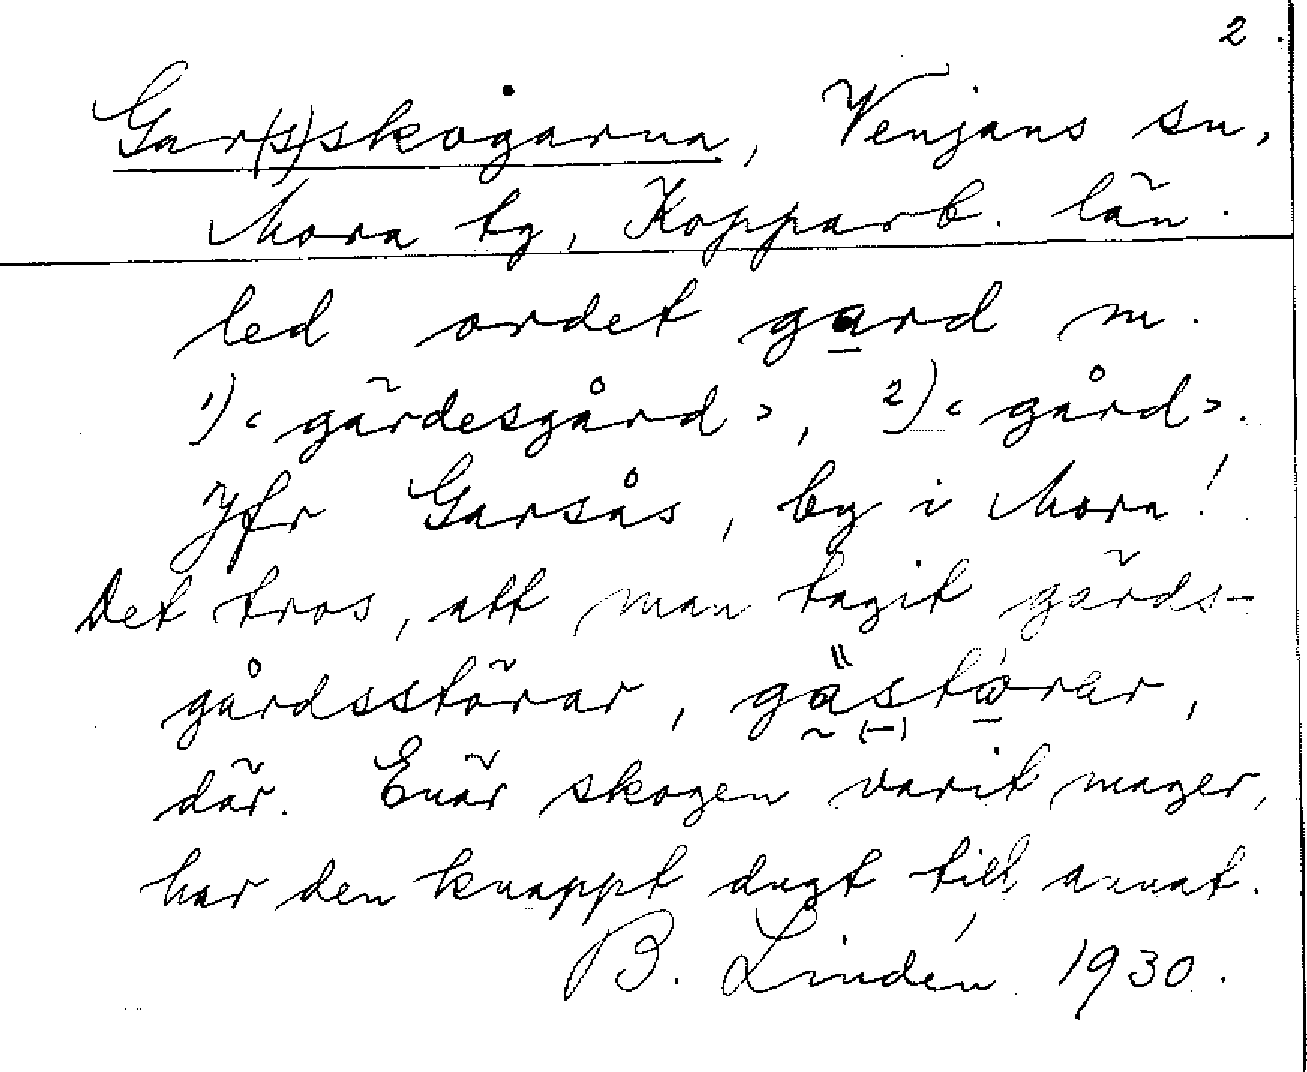 2.
Gar(s)skogarna, Venjans sn,
Mora tg, Kopparb. län.
led ordet gard m.
1) "gärdesgård", 2) "gård".
Jfr Garsås, by i Mora!
Det tros, att man tagit gärds-
gårdsstörar, gästörar,
där. Enär skogen varit mager,
har den knappt dugt till annat.
B. Lindén 1930.